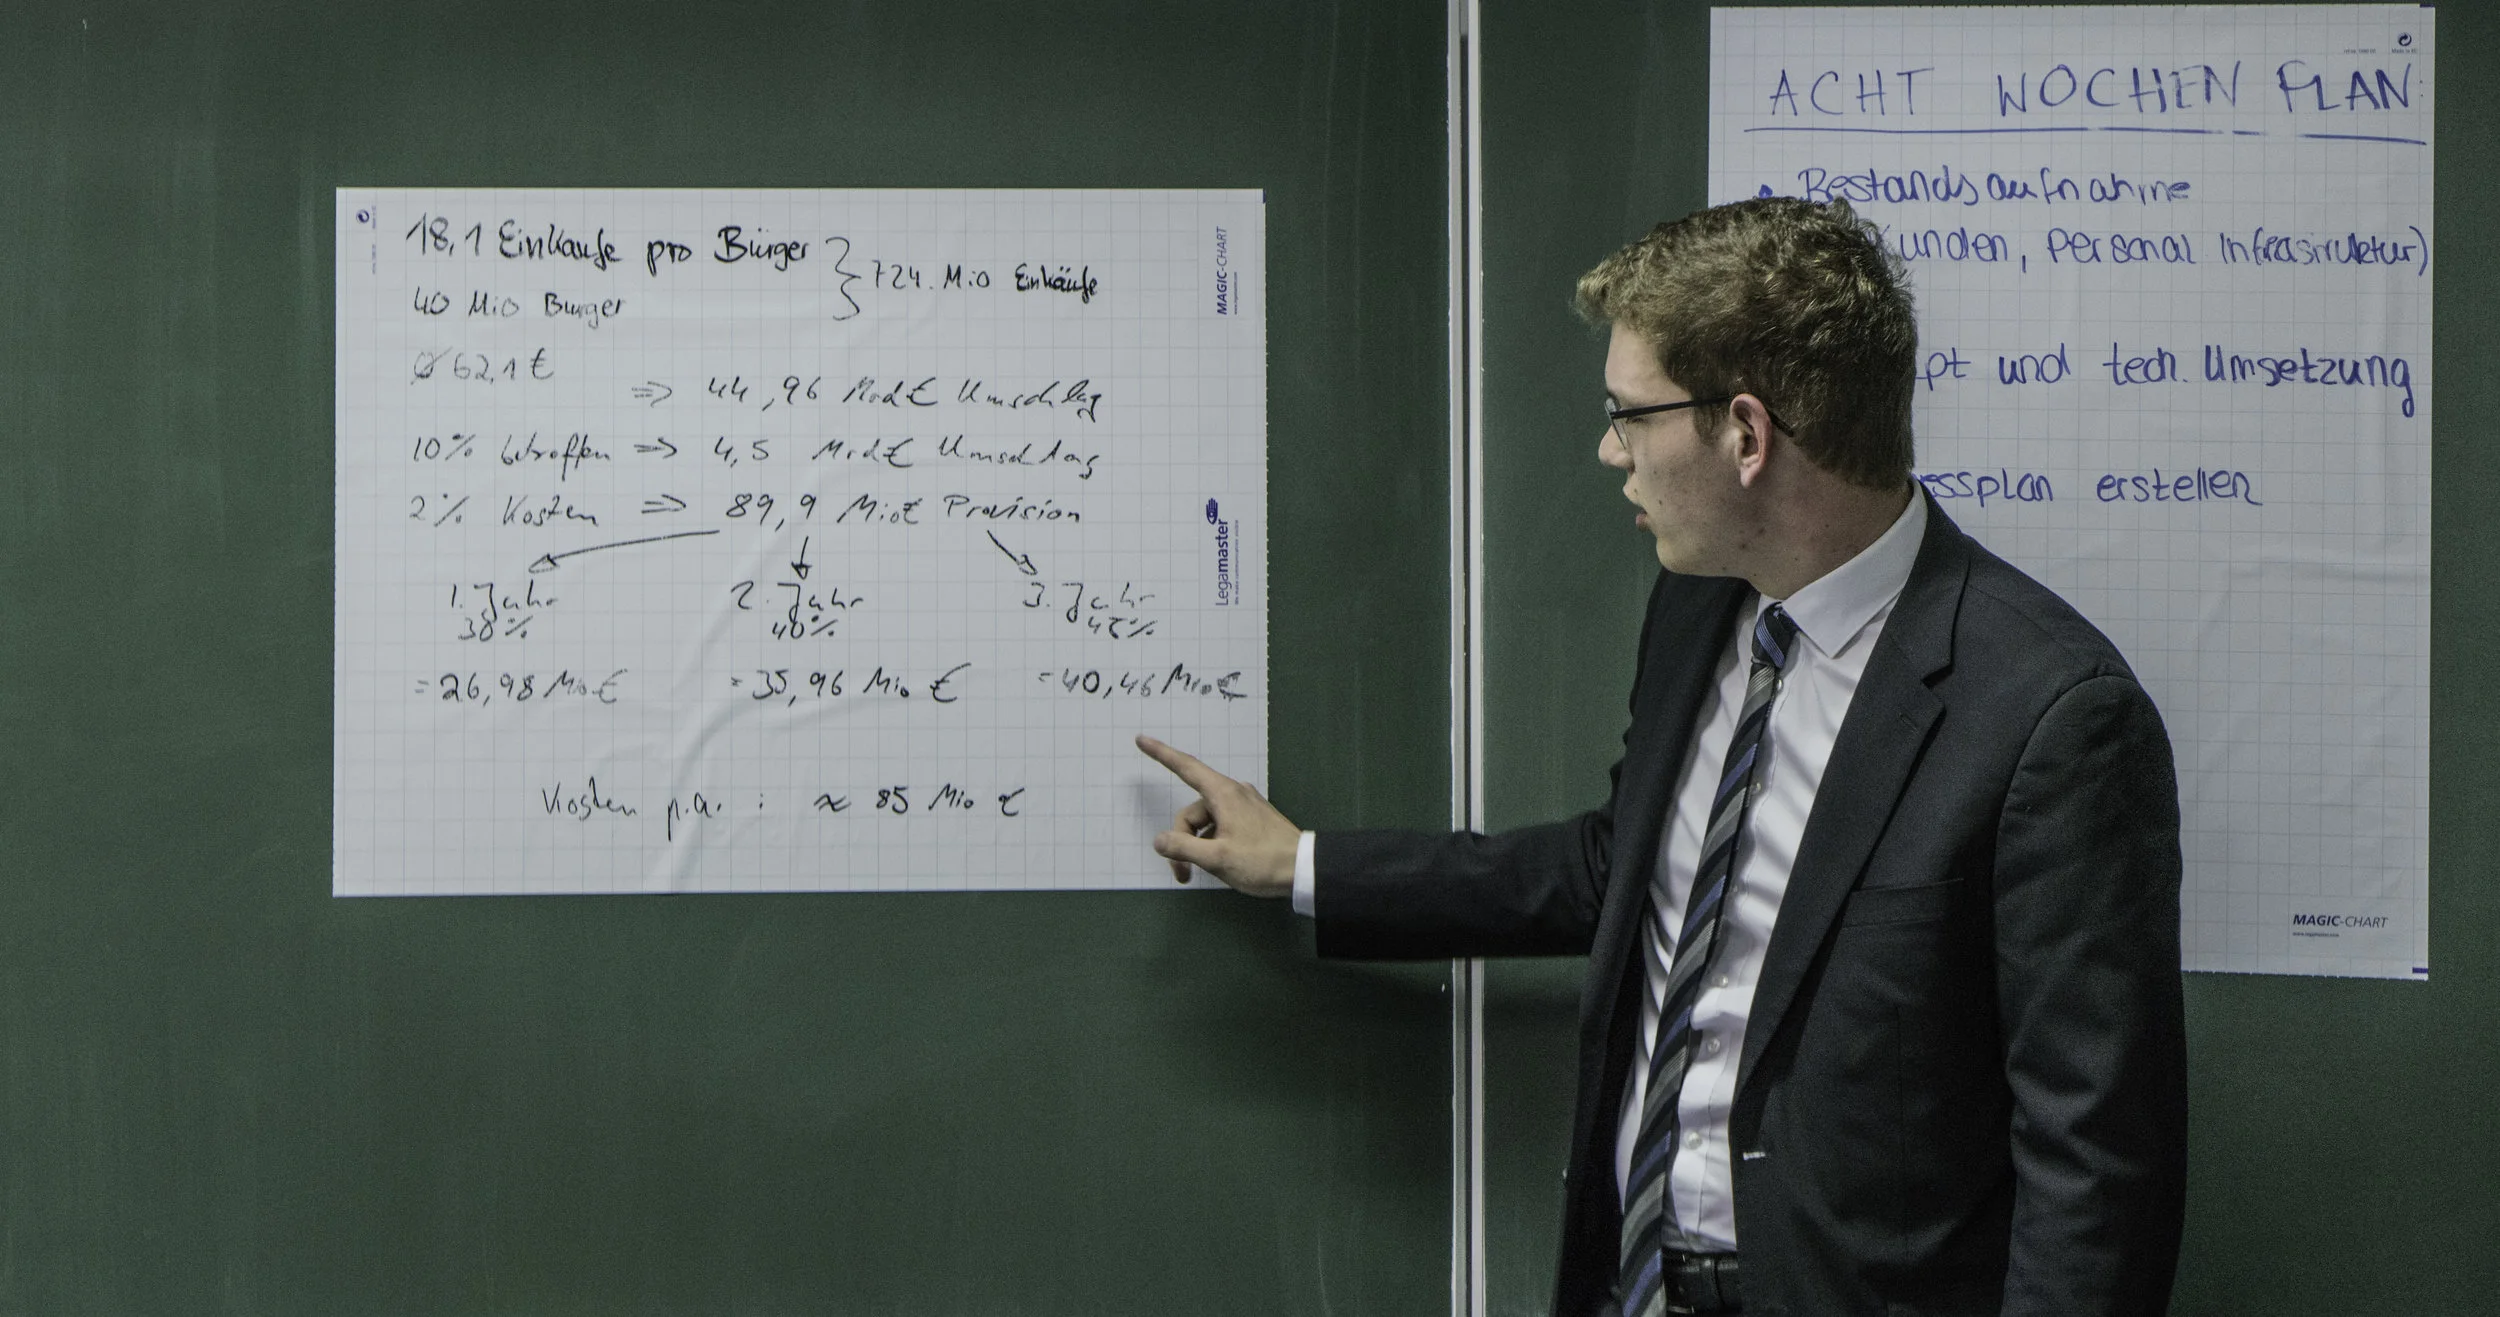 18,1 Einkäufe pro Bürger
40 Mio Bürger
724 Mio Einkäufe
Ø 62,1 €
=> 44,96 Mrd € Umschlag
10% betroffen => 4,5 Mrd € Umschlag
2% Kosten => 89,9 Mio € Provision
1. Jahr 2. Jahr 3. Jahr
30% 40% 45%
= 26,98 Mio € = 35,96 Mio € = 40,46 Mio €
Kosten p.a. : ≈ 85 Mio €
MAGIC-CHART
Legamaster
ACHT WOCHEN PLAN
• Bestandsaufnahme
unden, Personal Infrastruktur)
pt und tech. Umsetzung
essplan erstellen
MAGIC-CHART